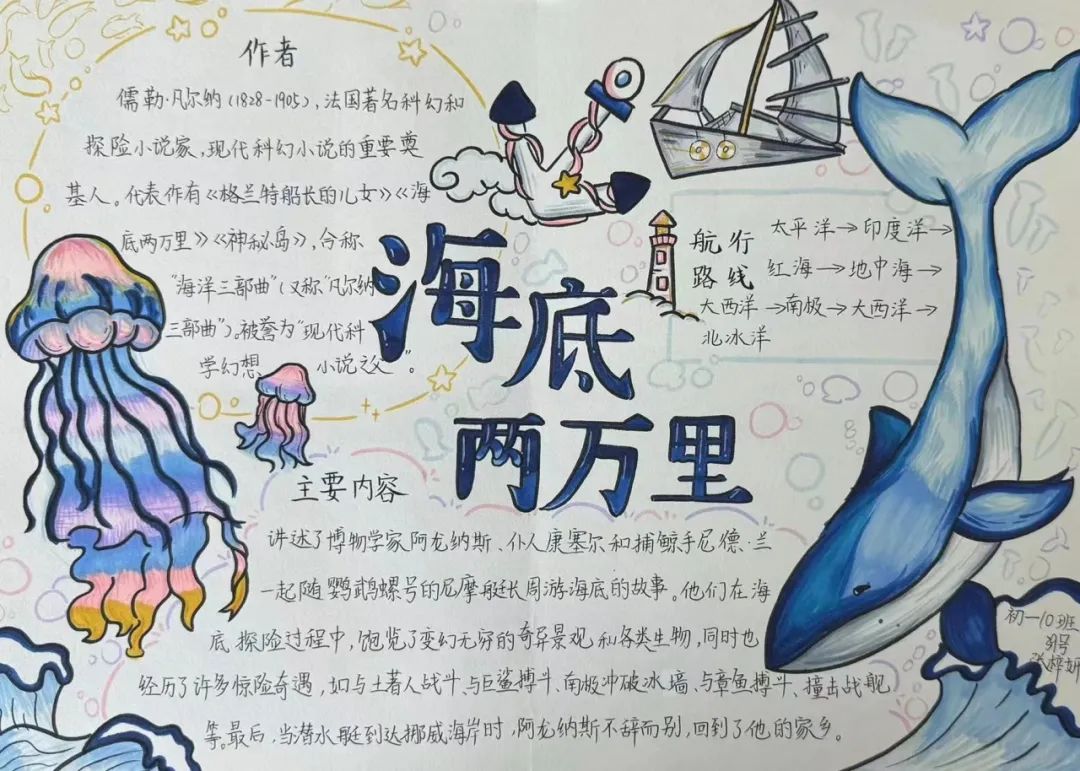 作者
儒勒·凡尔纳(1828-1905),法国著名科幻和
探险小说家,现代科幻小说的重要奠
基人。代表作有《格兰特船长的儿女》《海
底两万里》《神秘岛》,合称
“海洋三部曲”(又称“凡尔纳
三部曲”)。被誉为“现代科
学幻想 小说之父”。
海底
两万里
航行
路线
太平洋→印度洋→
红海→地中海→
大西洋→南极→大西洋→
北冰洋
主要内容
讲述了博物学家阿龙纳斯、仆人康塞尔和捕鲸手尼德·兰
一起随鹦鹉螺号的尼摩艇长周游海底的故事。他们在海
底探险过程中,饱览了变幻无穷的奇异景观和各类生物,同时也
经历了许多惊险奇遇,如与土著人战斗、与巨鲨搏斗、南极冲破冰墙、与章鱼搏斗、撞击战舰
等。最后,当潜水艇到达挪威海岸时,阿龙纳斯不辞而别,回到了他的家乡。
初一10班
号
张梓妍